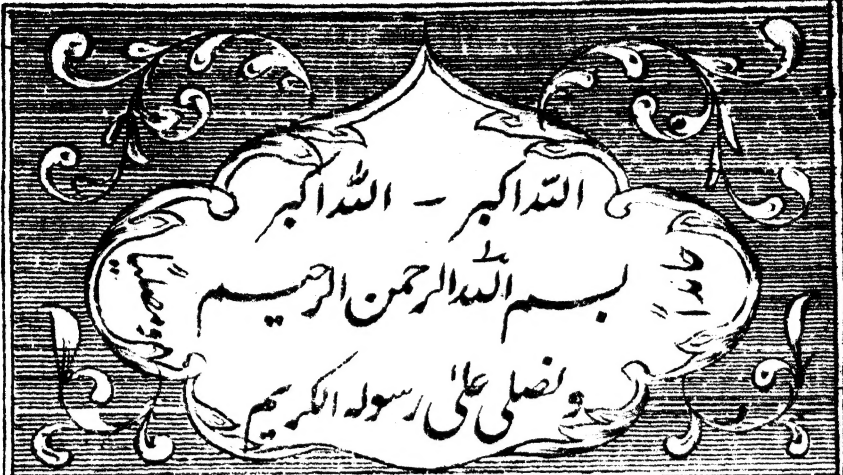 اللہ اکبر – اللہ اکبر
حامداً
بسم اللہ الرحمن الرحیم
ومصلیاً
ونصلی علیٰ رسولہ الکریم